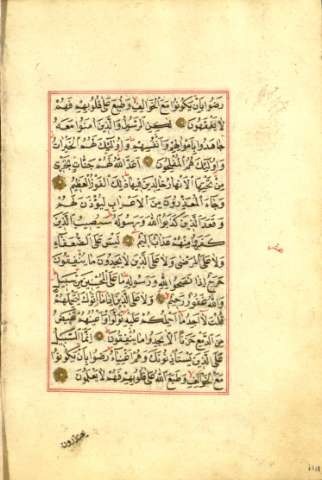 رَضُوا بِاَنْ يَكُونُوا مَعَ الْخَوَالِفِ وَطُبِعَ عَلٰى قُلُوبِهِمْ فَهُمْ
لَا يَفْقَهُونَ لٰكِنِ الرَّسُولُ وَالَّذِينَ اٰمَنُوا مَعَهُ
جَاهَدُوا بِاَمْوَالِهِمْ وَاَنْفُسِهِمْ وَاُولٰئِكَ لَهُمُ الْخَيْرَاتُ
وَاُولٰئِكَ هُمُ الْمُفْلِحُونَ اَعَدَّ اللّٰهُ لَهُمْ جَنَّاتٍ تَجْرِى
مِنْ تَحْتِهَا الْاَنْهَارُ خَالِدِينَ فِيهَا ذٰلِكَ الْفَوْزُ الْعَظِيمُ
وَجَاءَ الْمُعَذِّرُونَ مِنَ الْاَعْرَابِ لِيُؤْذَنَ لَهُمْ
وَقَعَدَ الَّذِينَ كَذَبُوا اللّٰهَ وَرَسُولَهُ سَيُصِيبُ الَّذِينَ
كَفَرُوا مِنْهُمْ عَذَابٌ اَلِيمٌ لَيْسَ عَلَى الضُّعَفَاءِ
وَلَا عَلَى الْمَرْضٰى وَلَا عَلَى الَّذِينَ لَا يَجِدُونَ مَا يُنْفِقُونَ
حَرَجٌ اِذَا نَصَحُوا لِلّٰهِ وَرَسُولِهِ مَا عَلَى الْمُحْسِنِينَ مِنْ سَبِيلٍ
وَاللّٰهُ غَفُورٌ رَحِيمٌ وَلَا عَلَى الَّذِينَ اِذَا مَا اَتَوْكَ لِتَحْمِلَهُمْ
قُلْتَ لَا اَجِدُ مَا اَحْمِلُكُمْ عَلَيْهِ تَوَلَّوْا وَاَعْيُنُهُمْ تَفِيضُ
مِنَ الدَّمْعِ حَزَنًا اَلَّا يَجِدُوا مَا يُنْفِقُونَ اِنَّمَا السَّبِيلُ
عَلَى الَّذِينَ يَسْتَأْذِنُونَكَ وَهُمْ اَغْنِيَاءُ رَضُوا بِاَنْ يَكُونُوا
مَعَ الْخَوَالِفِ وَطَبَعَ اللّٰهُ عَلٰى قُلُوبِهِمْ فَهُمْ لَا يَعْلَمُونَ
يعتذرون